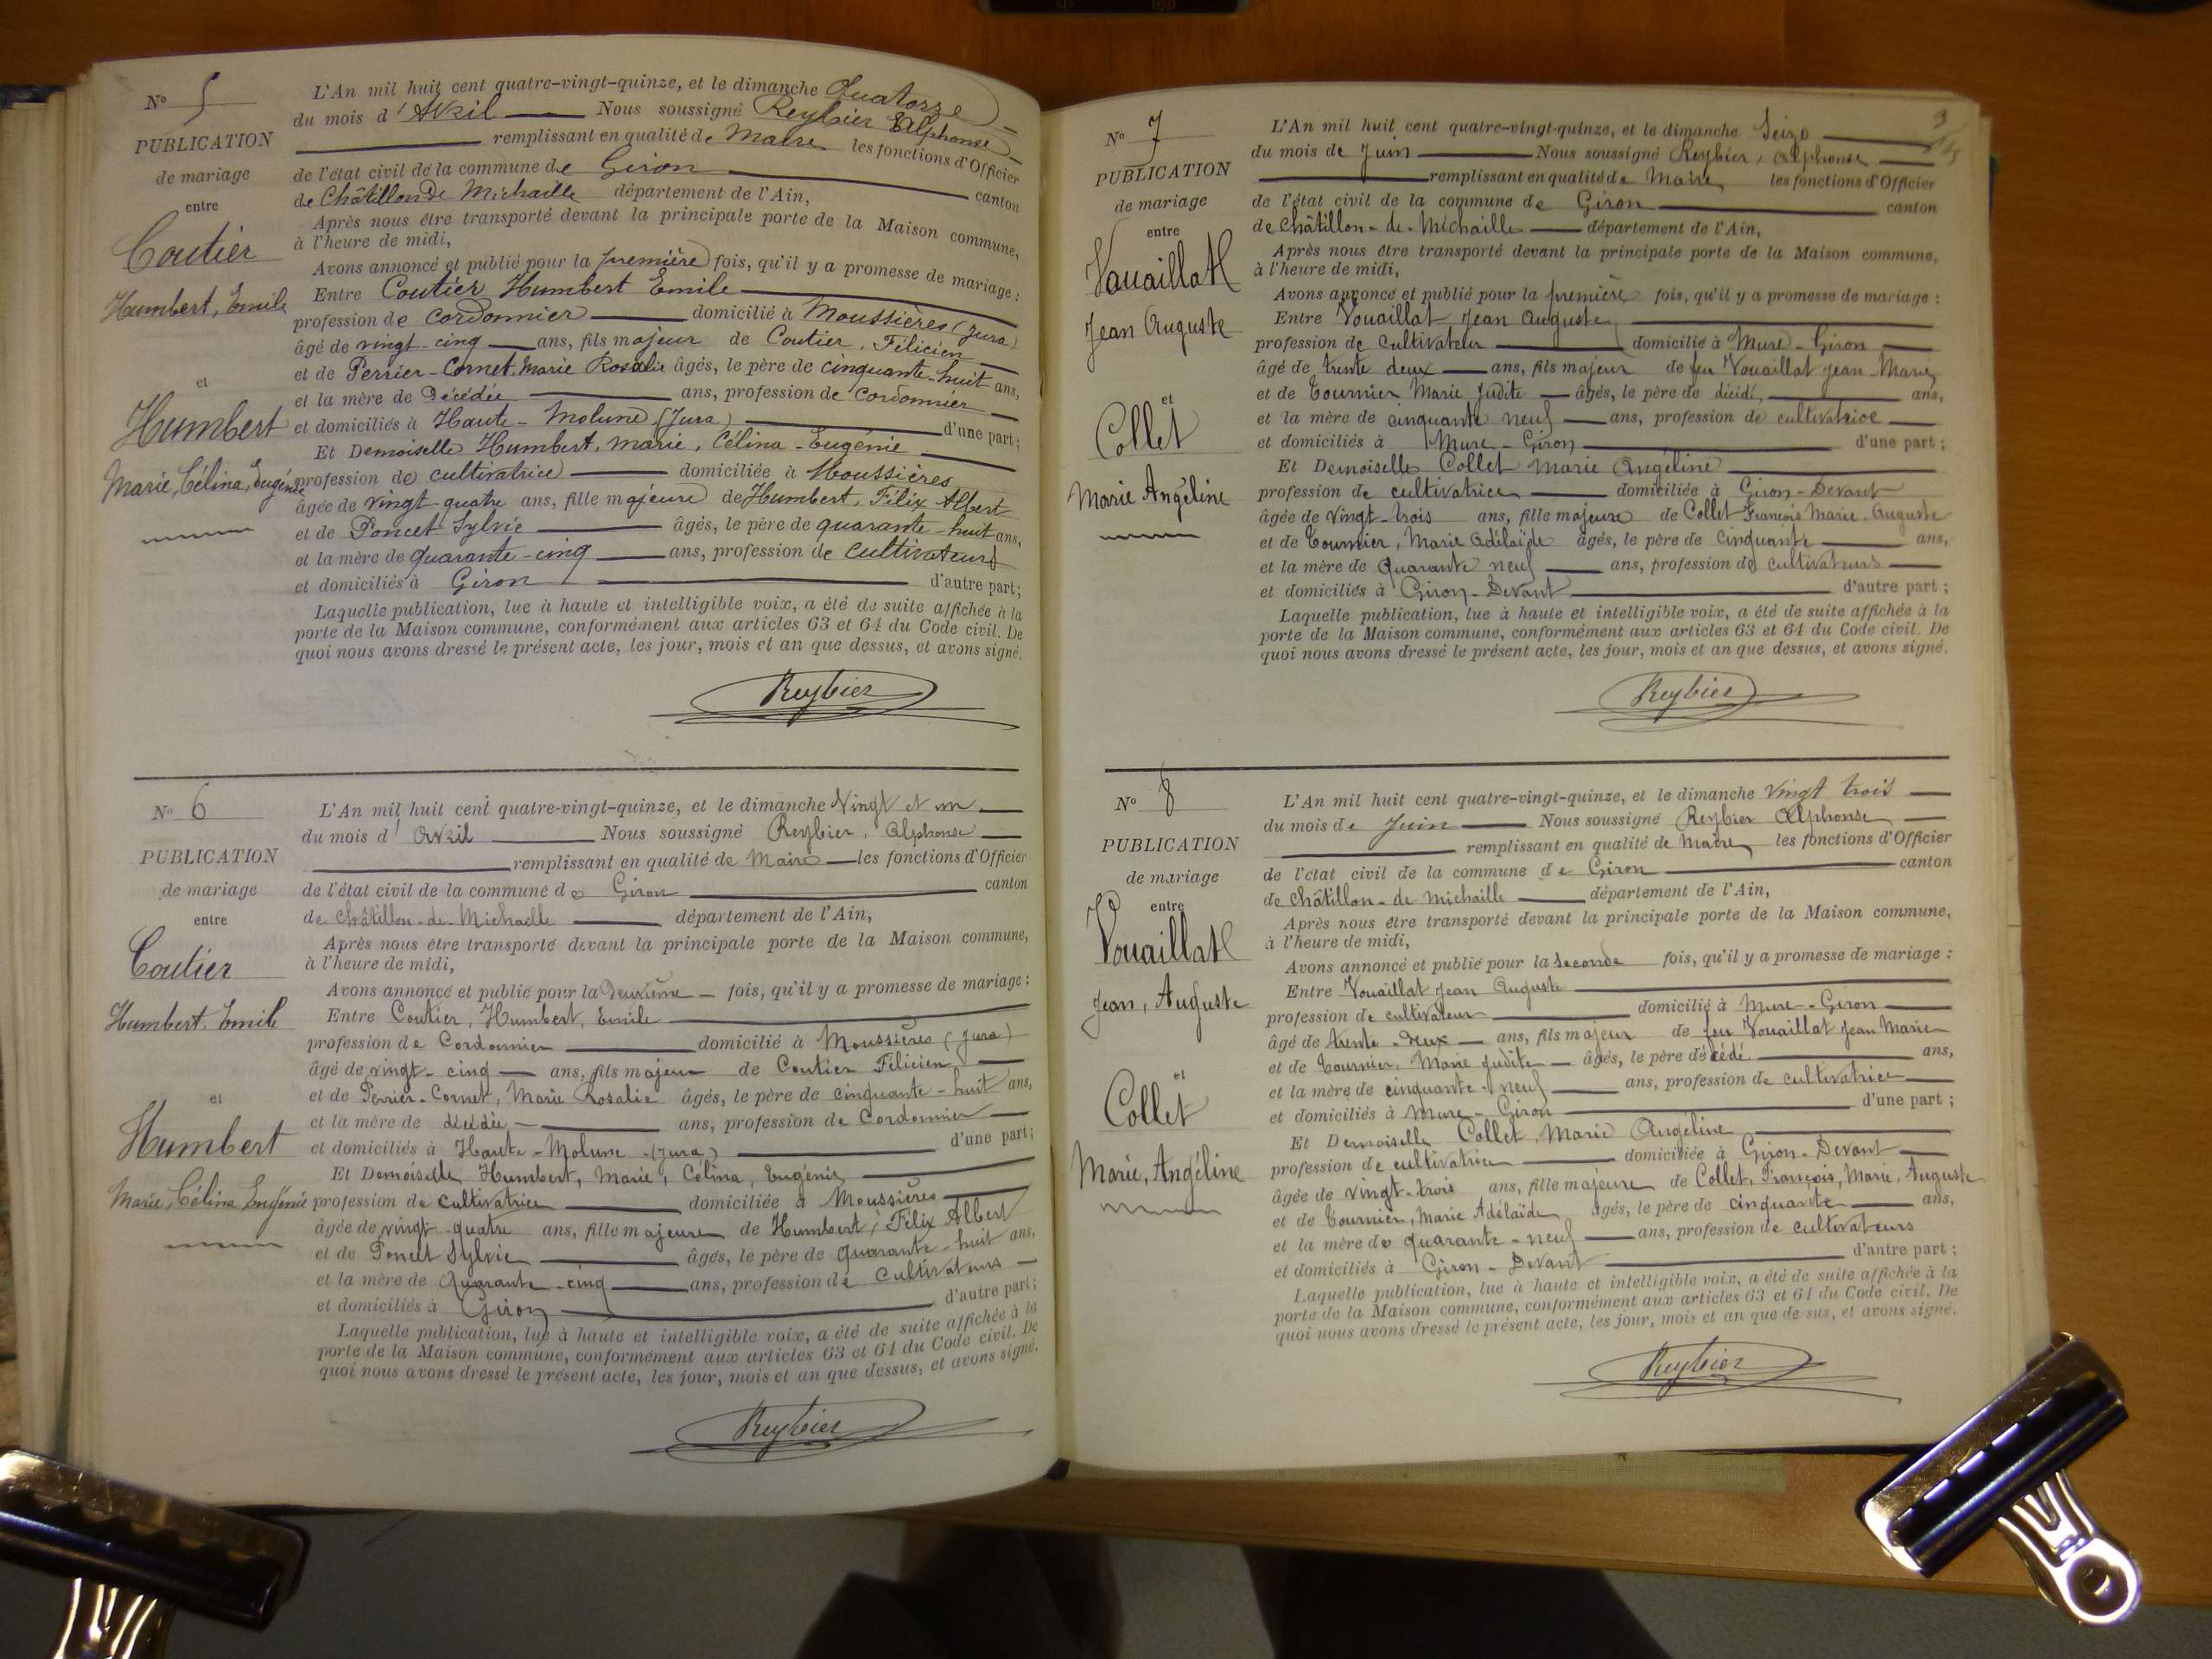 N° 5
PUBLICATION
de mariage
entre
Coutier
Humbert, Emile
et
Humbert
Marie, Célina, Eugénie
L'An mil huit cent quatre-vingt-quinze, et le dimanche Quatorze
du mois d'Avril Nous soussigné Reybier Alphonse
remplissant en qualité de Maire les fonctions d'Officier
de l'état civil de la commune de Giron canton
de Châtillon de Michaille département de l'Ain,
Après nous être transporté devant la principale porte de la Maison commune,
à l'heure de midi,
Avons annoncé et publié pour la première fois, qu'il y a promesse de mariage :
Entre Coutier Humbert Emile
profession de Cordonnier domicilié à Moussières (Jura)
âgé de vingt-cinq ans, fils majeur de Coutier, Félicien
et de Perrier-Cornet, Marie Rosalie âgés, le père de cinquante-huit ans,
et la mère de Décédée ans, profession de Cordonnier
et domiciliés à Haute-Molune (Jura) d'une part;
Et Demoiselle Humbert, Marie, Célina-Eugénie
profession de cultivatrice domiciliée à Moussières
âgée de vingt-quatre ans, fille majeure de Humbert, Félix-Albert
et de Poncet Sylvie âgés, le père de quarante-huit ans,
et la mère de quarante-cinq ans, profession de Cultivateurs
et domiciliés à Giron d'autre part;
Laquelle publication, lue à haute et intelligible voix, a été de suite affichée à la
porte de la Maison commune, conformément aux articles 63 et 64 du Code civil. De
quoi nous avons dressé le présent acte, les jour, mois et an que dessus, et avons signé.
Reybier
N° 6
PUBLICATION
de mariage
entre
Coutier
Humbert, Emile
et
Humbert
Marie, Célina, Eugénie
L'An mil huit cent quatre-vingt-quinze, et le dimanche Vingt et un
du mois d'Avril Nous soussigné Reybier, Alphonse
remplissant en qualité de Maire les fonctions d'Officier
de l'état civil de la commune de Giron canton
de Châtillon-de-Michaille département de l'Ain,
Après nous être transporté devant la principale porte de la Maison commune,
à l'heure de midi,
Avons annoncé et publié pour la Deuxième fois, qu'il y a promesse de mariage :
Entre Coutier, Humbert, Emile
profession de Cordonnier domicilié à Moussières (Jura)
âgé de vingt-cinq ans, fils majeur de Coutier Félicien
et de Perrier-Cornet, Marie Rosalie âgés, le père de cinquante-huit ans,
et la mère de décédée ans, profession de Cordonnier
et domiciliés à Haute-Molune (Jura) d'une part;
Et Demoiselle Humbert, Marie, Célina, Eugénie
profession de cultivatrice domiciliée à Moussières
âgée de vingt-quatre ans, fille majeure de Humbert, Félix Albert
et de Poncet Sylvie âgés, le père de quarante-huit ans,
et la mère de Quarante-cinq ans, profession de Cultivateurs
et domiciliés à Giron d'autre part;
Laquelle publication, lue à haute et intelligible voix, a été de suite affichée à la
porte de la Maison commune, conformément aux articles 63 et 64 du Code civil. De
quoi nous avons dressé le présent acte, les jour, mois et an que dessus, et avons signé.
Reybier
3
N° 7
PUBLICATION
de mariage
entre
Vouaillat
Jean Auguste
et
Collet
Marie Angéline
L'An mil huit cent quatre-vingt-quinze, et le dimanche Seize
du mois de Juin Nous soussigné Reybier, Alphonse
remplissant en qualité de Maire les fonctions d'Officier
de l'état civil de la commune de Giron canton
de Châtillon-de-Michaille département de l'Ain,
Après nous être transporté devant la principale porte de la Maison commune,
à l'heure de midi,
Avons annoncé et publié pour la première fois, qu'il y a promesse de mariage :
Entre Vouaillat Jean Auguste
profession de Cultivateur domicilié à Mure-Giron
âgé de trente deux ans, fils majeur de feu Vouaillat Jean-Marie
et de Tournier Marie Judite âgés, le père de décidé, ans,
et la mère de cinquante neuf ans, profession de cultivatrice
et domiciliés à Mure-Giron d'une part ;
Et Demoiselle Collet Marie Angéline
profession de cultivatrice domiciliée à Giron-Devant
âgée de Vingt-trois ans, fille majeure de Collet François Marie, Auguste
et de Tournier, Marie Adélaïde âgés, le père de Cinquante ans,
et la mère de Quarante neuf ans, profession de cultivateurs
et domiciliés à Giron-Devant d'autre part ;
Laquelle publication, lue à haute et intelligible voix, a été de suite affichée à la
porte de la Maison commune, conformément aux articles 63 et 64 du Code civil. De
quoi nous avons dressé le présent acte, les jour, mois et an que dessus, et avons signé.
Reybier
N° 8
PUBLICATION
de mariage
entre
Vouaillat
Jean, Auguste
et
Collet
Marie, Angéline
L'An mil huit cent quatre-vingt-quinze, et le dimanche Vingt trois
du mois de Juin Nous soussigné Reybier Alphonse
remplissant en qualité de Maire les fonctions d'Officier
de l'état civil de la commune de Giron canton
de Châtillon-de Michaille département de l'Ain,
Après nous être transporté devant la principale porte de la Maison commune,
à l'heure de midi,
Avons annoncé et publié pour la Seconde fois, qu'il y a promesse de mariage :
Entre Vouaillat Jean Auguste
profession de cultivateur domicilié à Mure-Giron
âgé de trente-deux ans, fils majeur de feu Vouaillat Jean Marie
et de Tournier, Marie Judite âgés, le père décédé ans,
et la mère de cinquante-neuf ans, profession de cultivatrice
et domiciliés à Mure-Giron d'une part ;
Et Demoiselle Collet, Marie Angéline
profession de cultivatrice domiciliée à Giron-Devant
âgée de Vingt-trois ans, fille majeure de Collet, François, Marie, Auguste
et de Tournier, Marie Adélaïde âgés, le père de cinquante ans,
et la mère de quarante-neuf ans, profession de cultivateurs
et domiciliés à Giron-Devant d'autre part ;
Laquelle publication, lue à haute et intelligible voix, a été de suite affichée à la
porte de la Maison commune, conformément aux articles 63 et 64 du Code civil. De
quoi nous avons dressé le présent acte, les jour, mois et an que de sus, et avons signé.
Reybier